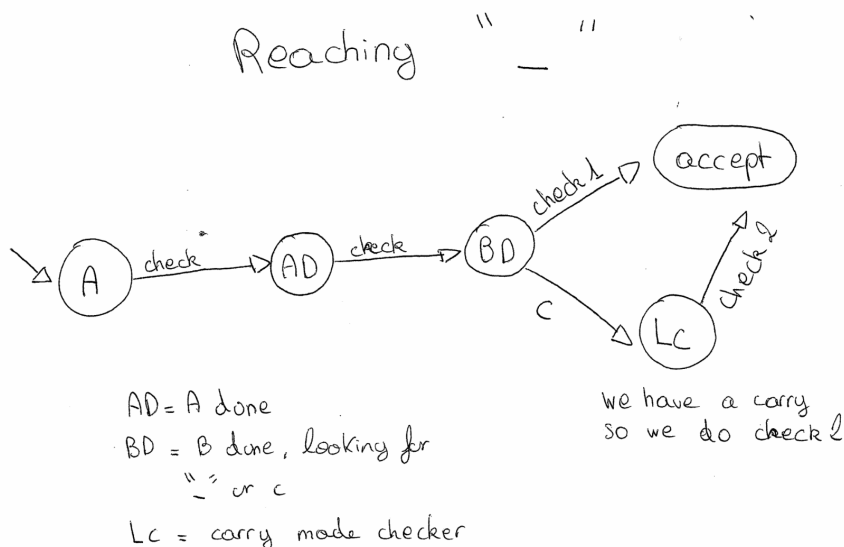 Reaching "_"
accept
check 1
check
check
A
AD
BD
check 2
c
Lc
AD = A done
BD = B done, looking for
"_" or c
Lc = carry mode checker
we have a carry
so we do check 2